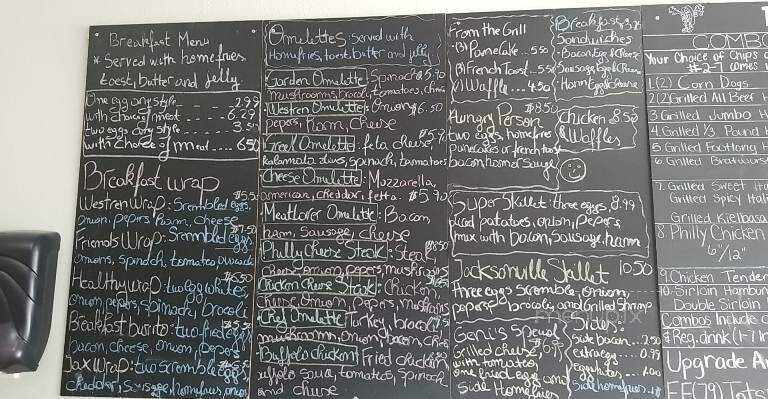 Breakfast Menu
* Served with homefries
toest, butter and jelly.
One egg any style --- 2.99
with choice of meat --- 6.29
two eggs any style
with choice of meat --- 6.50
Breakfast wrap
Westren Wrap: Srembled eggs
onion, pepers ham, cheese
Friends Wrap: Srembled eggs
onions, spinach, tomatoes avocado
Healthy wrap: two egg whites,
onion peppers, spinach, brocoli
Breakfast burrito: two fried egg
bacon, cheese, onion, pepers
Jax Wrap: two scremble eggs
cheddar, sausage, homefries, onions
Omelettes: served with
homefries, toest, butter and jelly
Garden Omulette: Spinach 5.90
mushrooms, brocoli, tomatoes, chees
Westren Omulette: Onions 6.50
pepers, Ham, cheese
Greek Omulette: feta cheese,
kalamata olives, spinach, tamatoes
Cheese Omulette: Mozzarella,
american, cheddar, fetta. $5.90
Meatlover Omulette: Bacon,
ham, Sausage, cheese
Philly Cheese Steak: Steak,
cheese, onion, pepers, mushrooms
Chicken Cheese Steak: Chicken,
cheese, onion, papers, mushrooms
Chef Omulette: Turkey, brocoli
mushrooms, onion, bacon, chees
Buffelo chicken: Fried chicken,
uffelo sauce, tomatoes, spinach
and cheese
From the Grill
(3) Pancake .. 5.50
(3) French Toast .. 5.50
(1) Waffle ... 4.50
Breakfast
Sandwiches
Bacon, Egg & Cheese
Sausage, Egg & Cheese
Ham, Egg & Cheese
Hungry Person $8.50
two eggs, homefries
pancakes or french toast
bacon, ham or sausage
Chicken 8.50
& Waffles
Super Skillet: three eggs, 8.99
diced potatoes, onion, pepers
mix with bacon, sausage, ham
Jacksonville Skillet 10.50
three eggs scremble, onion,
peperse brocoli, and Grilled Shrimp
Beni's Speual
Grilled cheese
with tomatoes,
one fried egg and
Side Homefries
Sides
Side bacon... 2.50
extra egg.. 0.99
egg whites
Side homefries
COMBO
Your Choice of Chips
#2-7 comes
1. (2) Corn Dogs
2 (2) Grilled All Beef
3 Grilled Jumbo H
4. Grilled 1/3 Pound
5 Grilled Footlong H
6. Grilled Bratwurst
7. Grilled Sweet Ita
Grilled Spicy Ital
Grilled Kielbasa
8 Philly Chicken
6"/12"
9. Chicken Tender
10. Sirloin Hambur
Double Sirloin
Combos Include C
& Reg. drink (1-7
Upgrade A